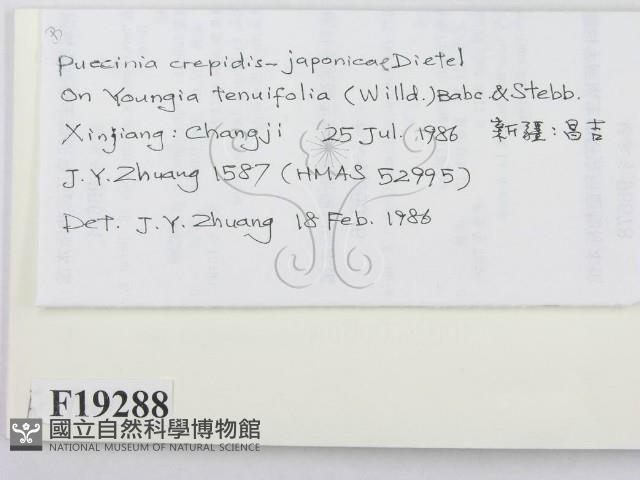 Puccinia crepidis-japonicae Dietel
On Youngia tenuifolia (Willd.) Babc. & Stebb.
Xinjiang: Changji 25 Jul. 1986 新疆:昌吉
J.Y.Zhuang 1587 (HMAS 52995)
Det. J.Y.Zhuang 18 Feb. 1986
F19288
國立自然科學博物館
NATIONAL MUSEUM OF NATURAL SCIENCE